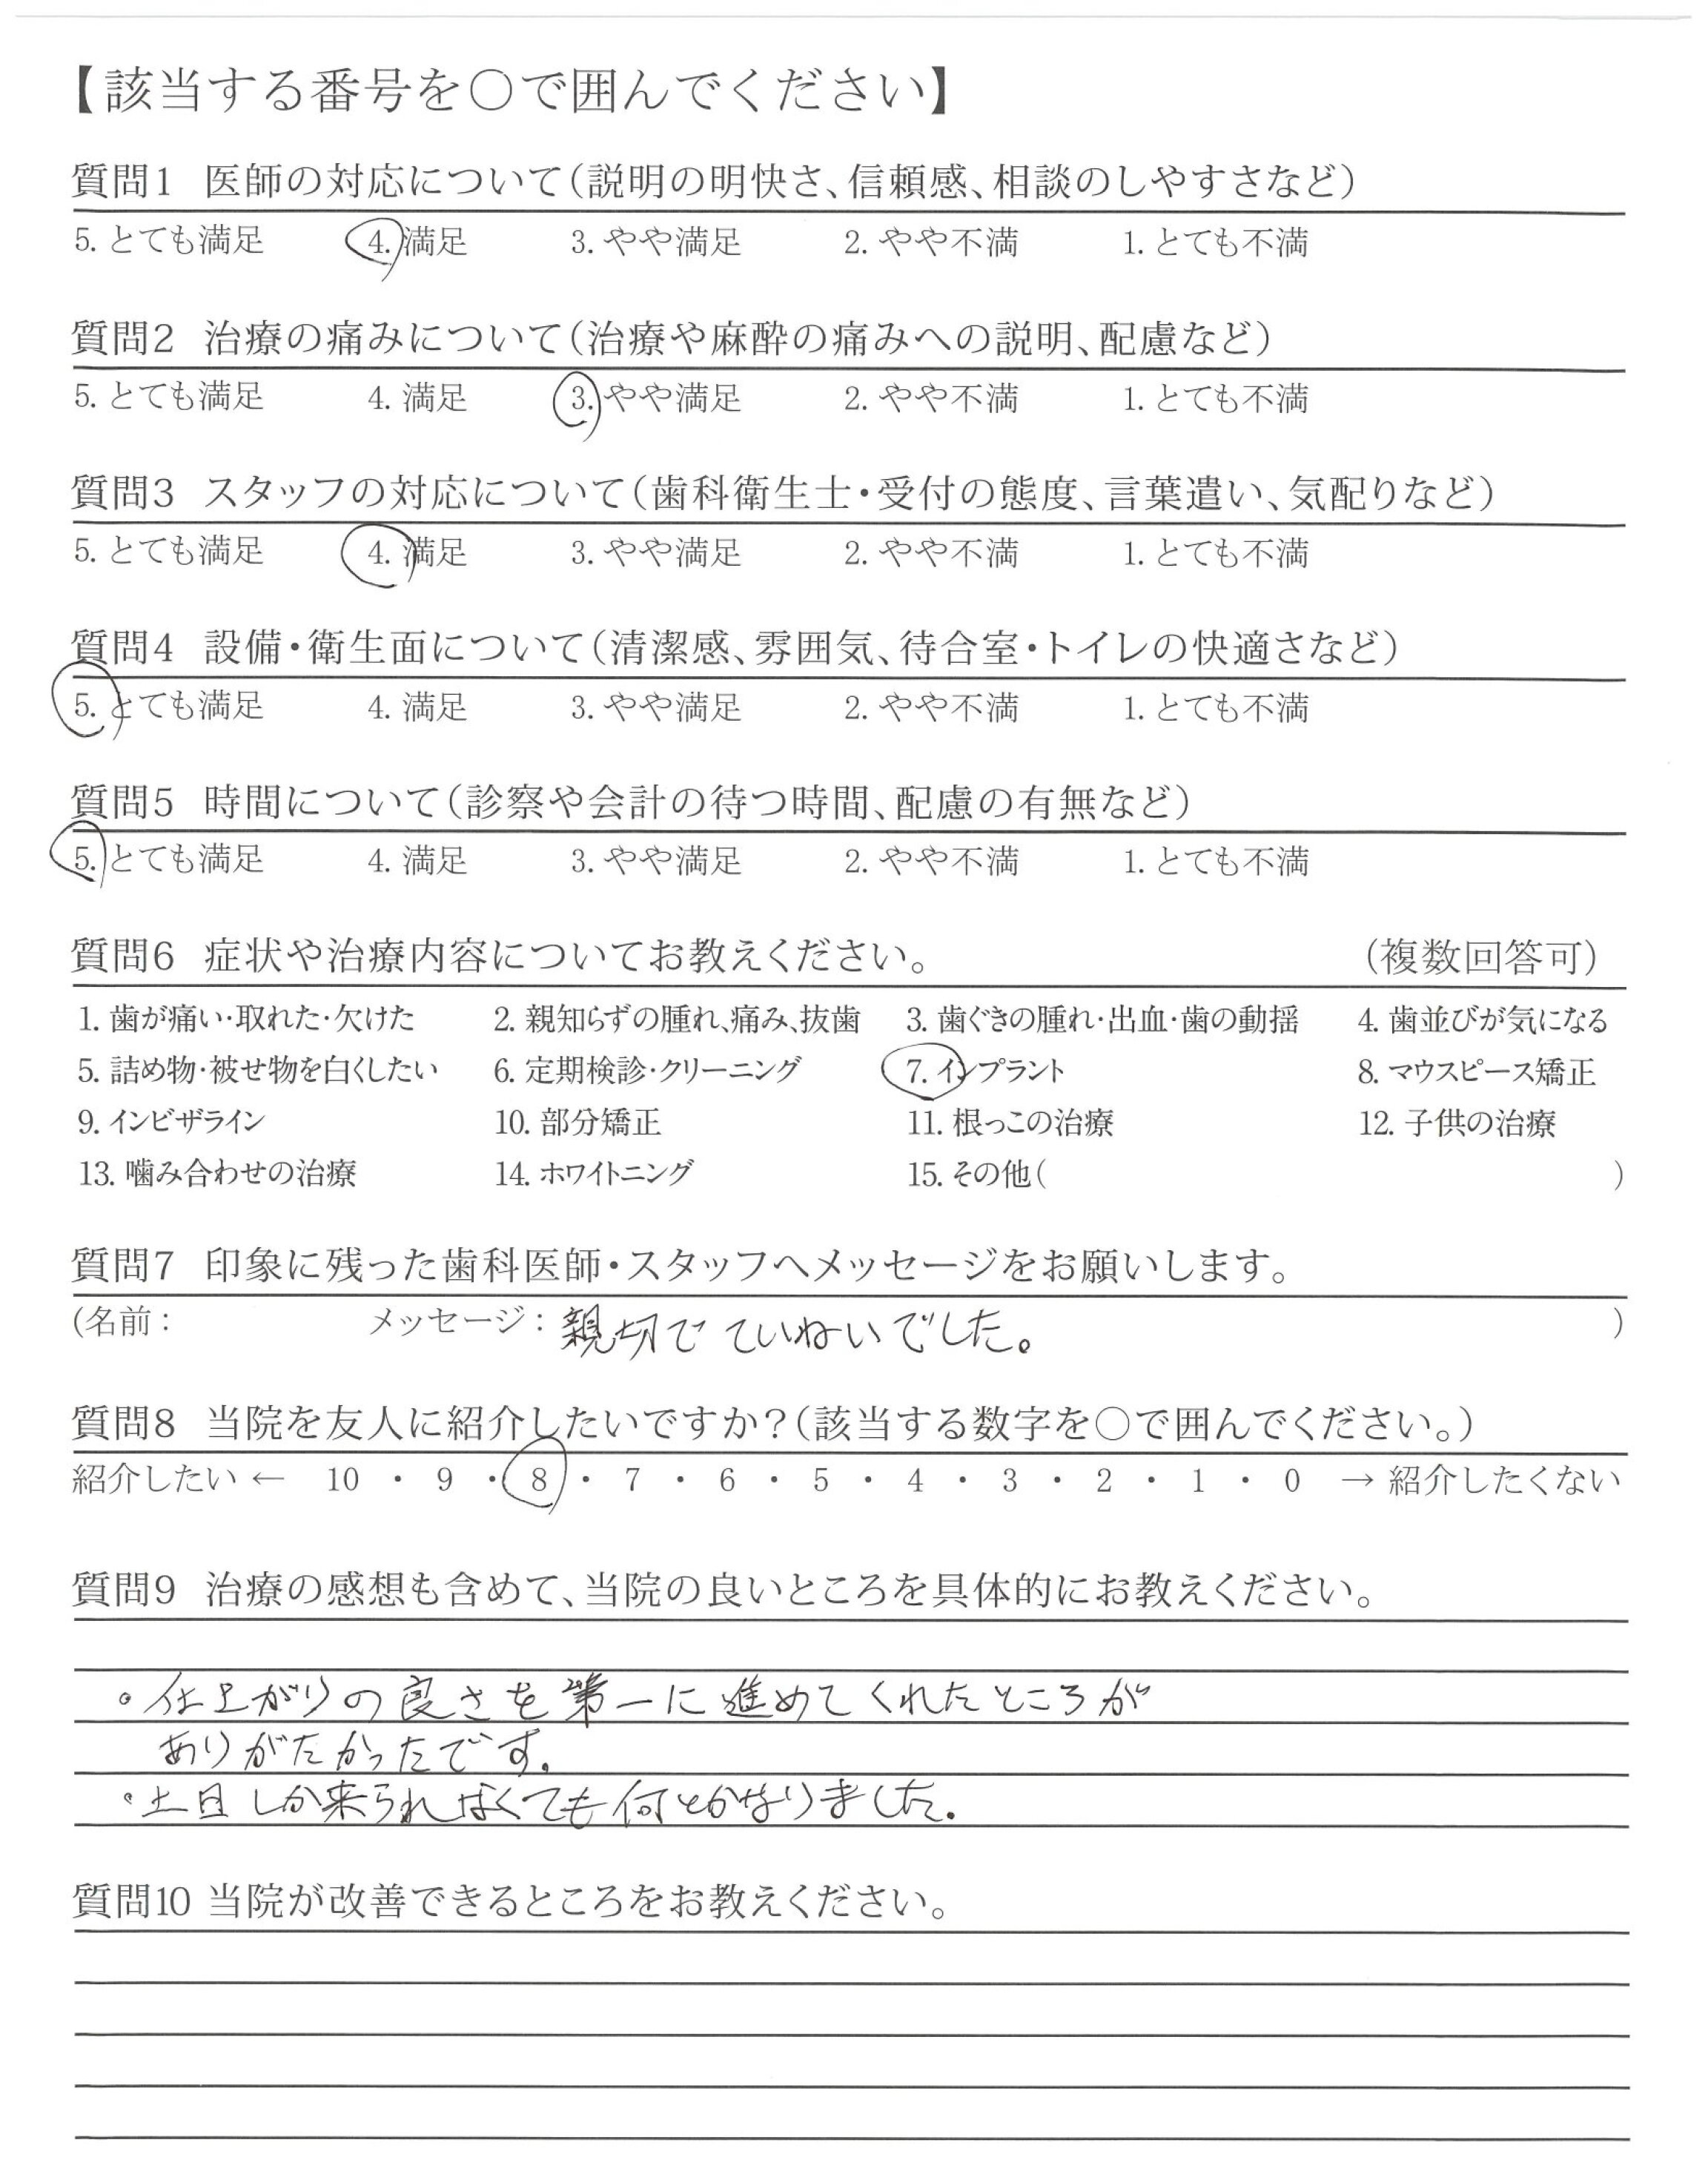 【該当する番号を〇で囲んでください】
質問1 医師の対応について（説明の明快さ、信頼感、相談のしやすさなど）
5. とても満足 4. 満足 3. やや満足 2. やや不満 1. とても不満
質問2 治療の痛みについて（治療や麻酔の痛みへの説明、配慮など）
5. とても満足 4. 満足 3. やや満足 2. やや不満 1. とても不満
質問3 スタッフの対応について（歯科衛生士・受付の態度、言葉遣い、気配りなど）
5. とても満足 4. 満足 3. やや満足 2. やや不満 1. とても不満
質問4 設備・衛生面について（清潔感、雰囲気、待合室・トイレの快適さなど）
5. とても満足 4. 満足 3. やや満足 2. やや不満 1. とても不満
質問5 時間について（診察や会計の待つ時間、配慮の有無など）
5. とても満足 4. 満足 3. やや満足 2. やや不満 1. とても不満
質問6 症状や治療内容についてお教えください。 （複数回答可）
1. 歯が痛い・取れた・欠けた 2. 親知らずの腫れ、痛み、抜歯 3. 歯ぐきの腫れ・出血・歯の動揺 4. 歯並びが気になる
5. 詰め物・被せ物を白くしたい 6. 定期検診・クリーニング 7. インプラント 8. マウスピース矯正
9. インビザライン 10. 部分矯正 11. 根っこの治療 12. 子供の治療
13. 噛み合わせの治療 14. ホワイトニング 15. その他（ ）
質問7 印象に残った歯科医師・スタッフへメッセージをお願いします。
（名前： メッセージ：親切でていねいでした。 ）
質問8 当院を友人に紹介したいですか？（該当する数字を〇で囲んでください。）
紹介したい ← 10 ・ 9 ・ 8 ・ 7 ・ 6 ・ 5 ・ 4 ・ 3 ・ 2 ・ 1 ・ 0 → 紹介したくない
質問9 治療の感想も含めて、当院の良いところを具体的にお教えください。
・仕上がりの良さを第一に進めてくれたところが
ありがたかったです。
・土日しか来られなくても何とかなりました。
質問10 当院が改善できるところをお教えください。